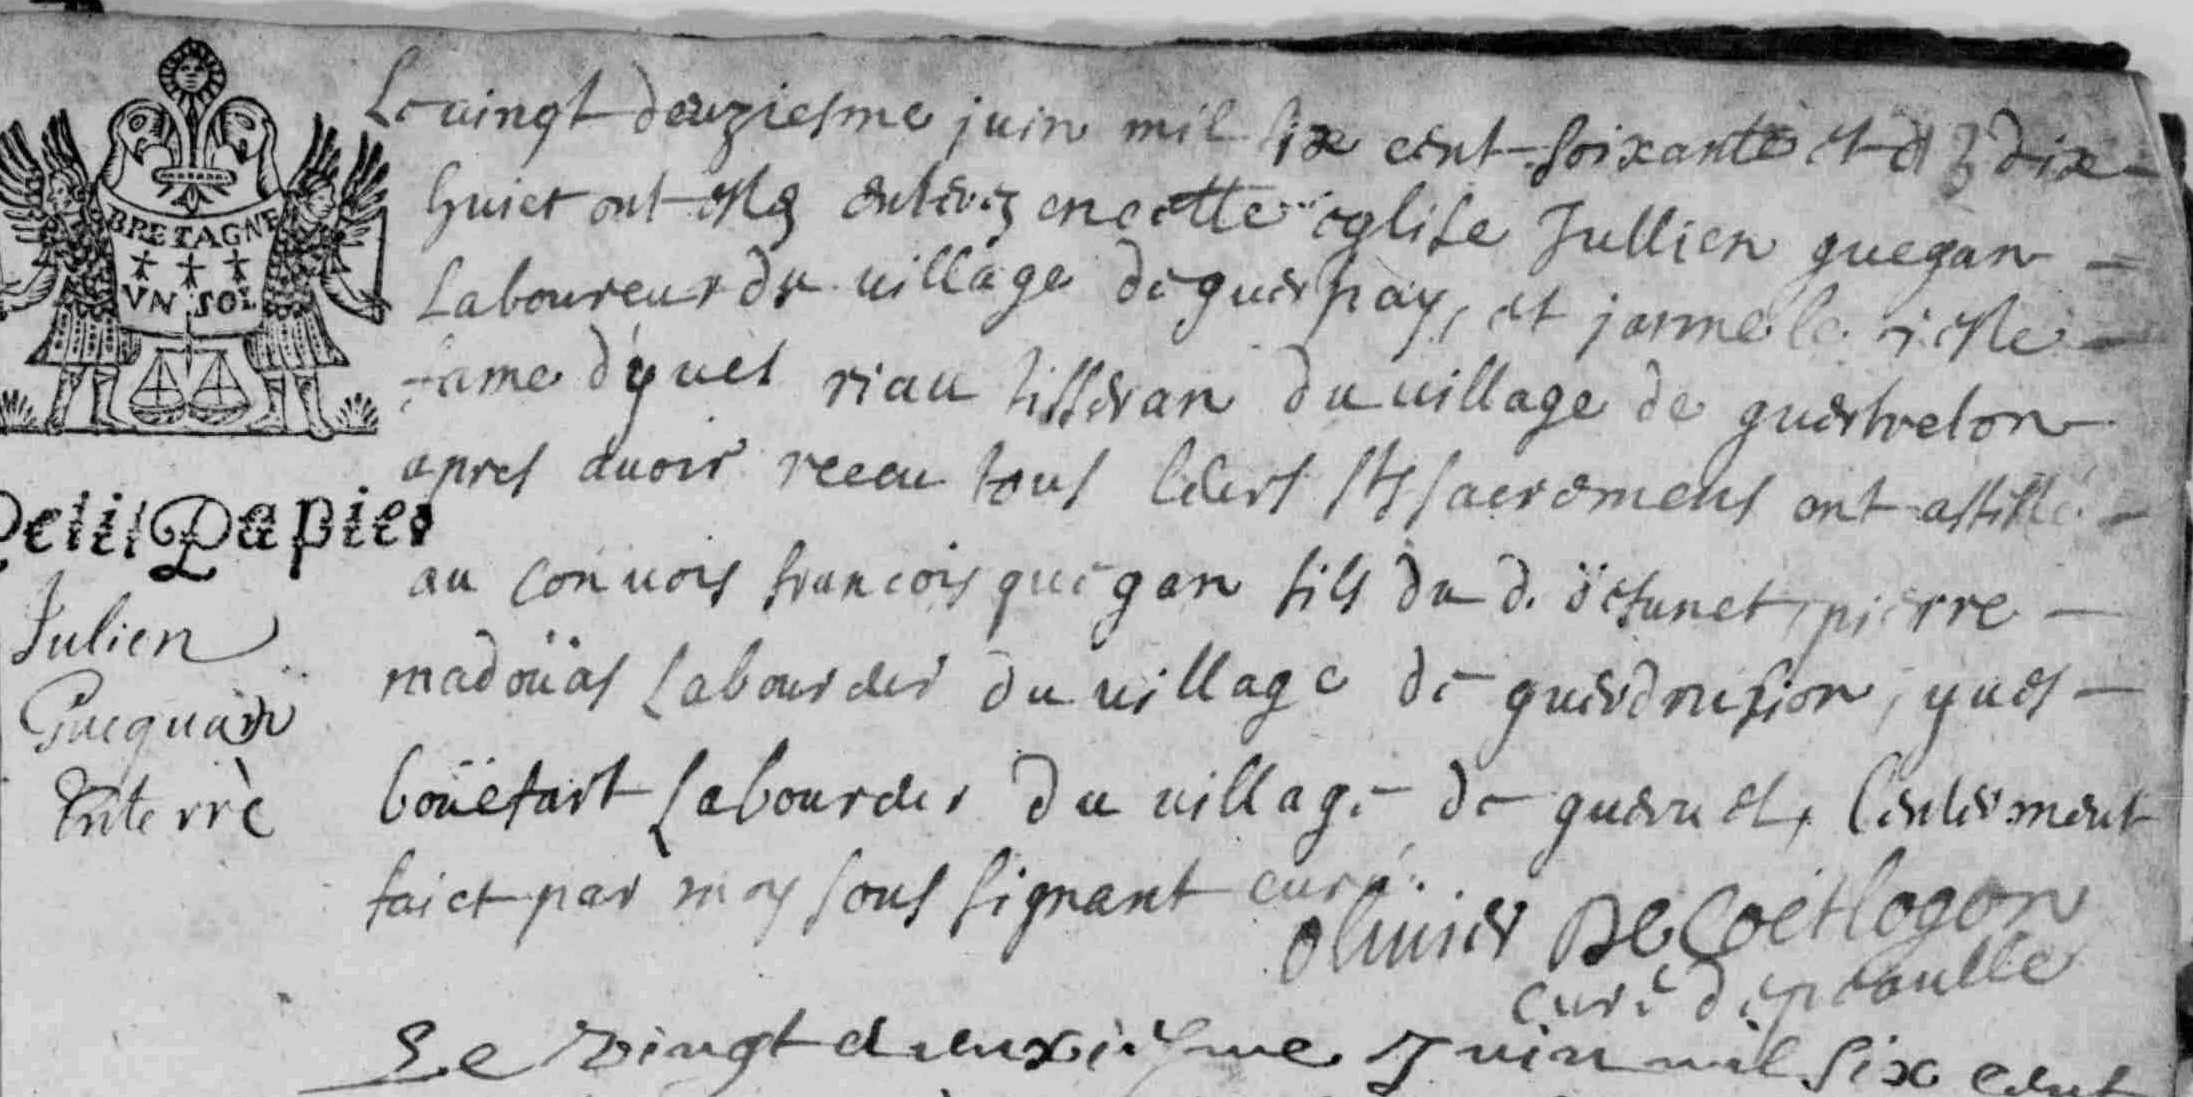 BRETAGNE
VN SOL
Petit Papier
Julien
Gueguain
Enterrè
Le vingt deuziesme juin mil six cent soixante et dix
huict ont estes enterez en cette eglise Jullien guegan
Laboureur du village de guerpay, et janne le
fame d'yves riau tisseran du village de guerbreton
apres avoir receu tous leurs sts sacremens ont assisté
au convois francois guegan fils du d. defunct, pierre
madoüas Laboureur du village de, yves
boüetart Laboureur du village de, lenterement
faict par moy sous signant curé.
Olivier De Coetlogon
curé de ploeaulle
Le vingt deuxiesme Juin mil six cent